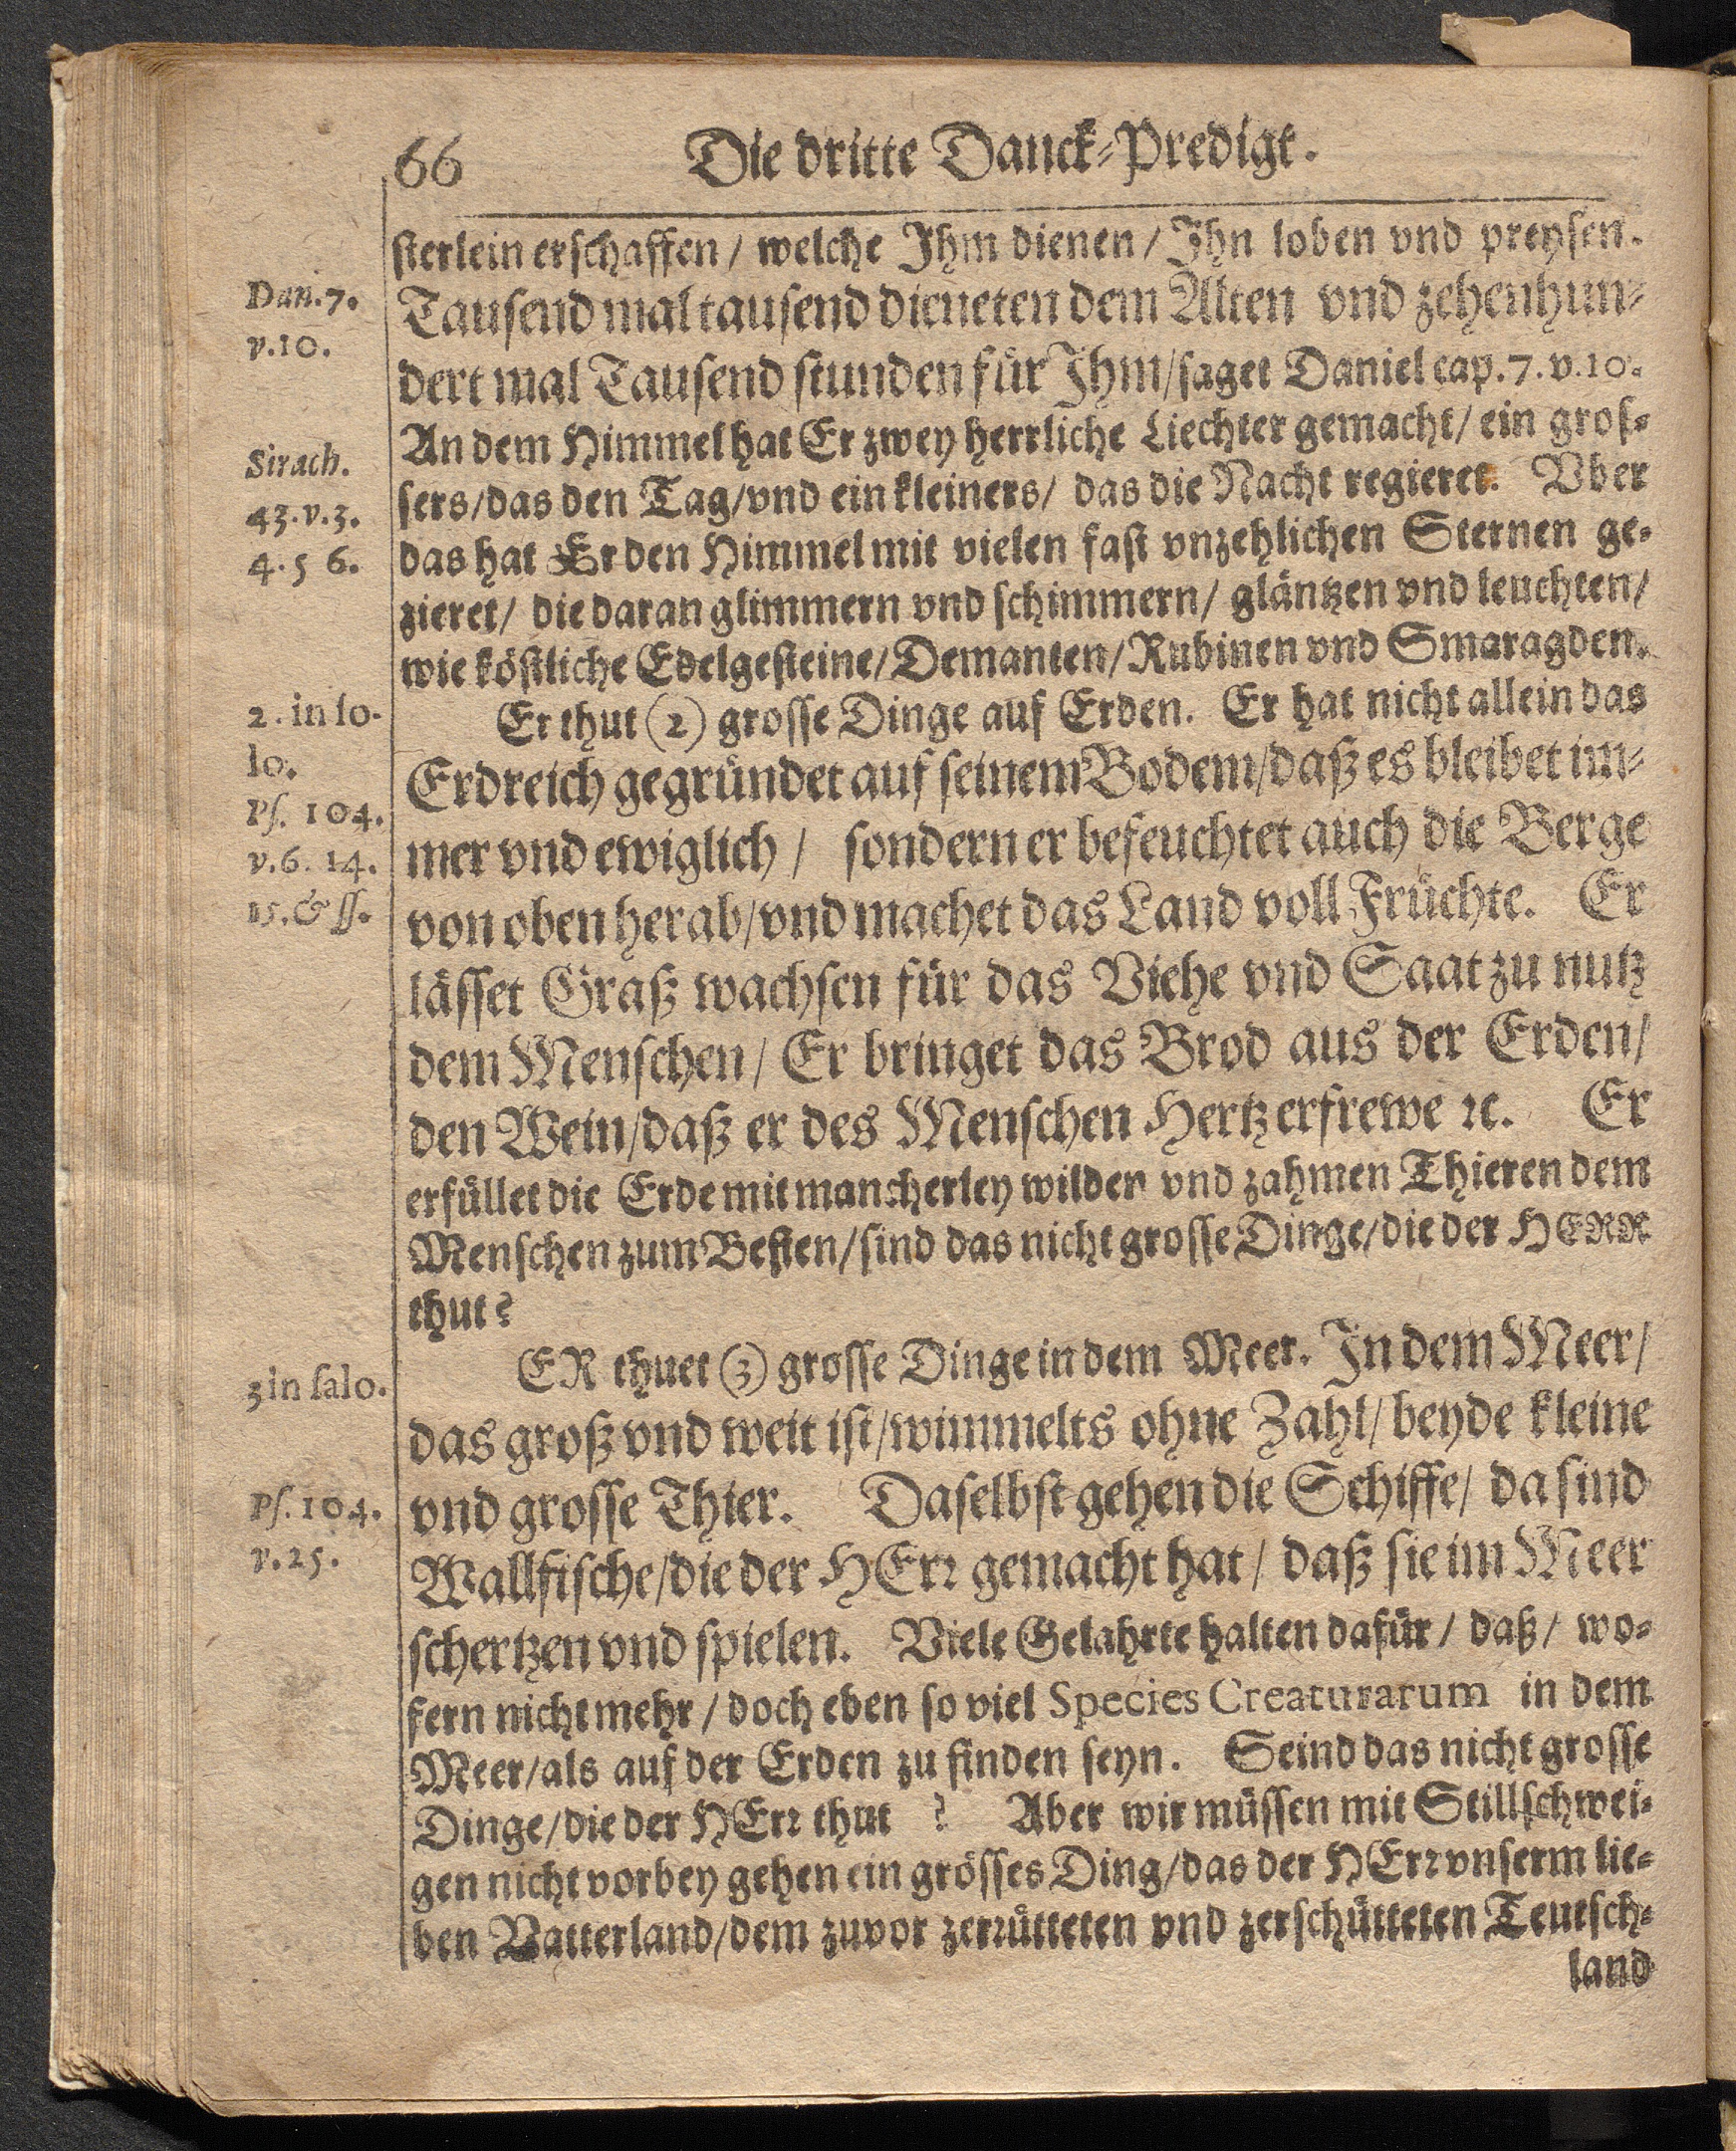 66 Die dritte Danck-Predigt.
sterlein erschaffen / welche Ihm dienen / Ihn loben vnd preysen.
Dan. 7.
v. 10.
Tausend mal tausend dieneten dem Alten vnd zehenhun-
dert mal Tausend stunden für Ihm/saget Daniel cap. 7. v. 10.
An dem Himmel hat Er zwey herrliche Liechter gemacht / ein gros-
Sirach.
43. v. 3.
4. 5 6.
sers/das den Tag/vnd ein kleiners/ das die Nacht regieret. Vber
das hat Er den Himmel mit vielen fast vnzehlichen Sternen ge-
zieret/ die daran glimmern vnd schimmern/ gläntzen vnd leuchten/
wie köstliche Edelgesteine/Demanten/Rubinen vnd Smaragden.
2. in so-
lo.
Ps. 104.
v. 6. 14.
15. & ss.
Er thut (2) grosse Dinge auf Erden. Er hat nicht allein das
Erdreich gegründet auf seinem Bodem/daß es bleibet im-
mer vnd ewiglich / sondern er befeuchtet auch die Berge
von oben herab/vnd machet das Land voll Früchte. Er
lässet Graß wachsen für das Viehe vnd Saat zu nutz
dem Menschen/ Er bringet das Brod aus der Erden/
den Wein/daß er des Menschen Hertz erfrewe ꝛc. Er
erfüllet die Erde mit mancherley wilden vnd zahmen Thieren dem
Menschen zum Besten/sind das nicht grosse Dinge/die der HERR
thut?
3 in salo.
ER thuet (3) grosse Dinge in dem Meer. In dem Meer/
das groß vnd weit ist/wimmelts ohne Zahl/ beyde kleine
Ps. 104.
v. 25.
vnd grosse Thier. Daselbst gehen die Schiffe/ da sind
Wallfische/die der HErr gemacht hat/ daß sie im Meer
schertzen vnd spielen. Viele Gelahrte halten dafür/ daß/ wo-
fern nicht mehr / doch eben so viel Species Creaturarum in dem
Meer/als auf der Erden zu finden seyn. Seind das nicht grosse
Dinge/die der HErr thut ? Aber wir müssen mit Stillschwei-
gen nicht vorbey gehen ein grösses Ding/das der HErr vnserm lie-
ben Vatterland/dem zuvor zerrütteten vnd zerschütteten Teutsch-
land